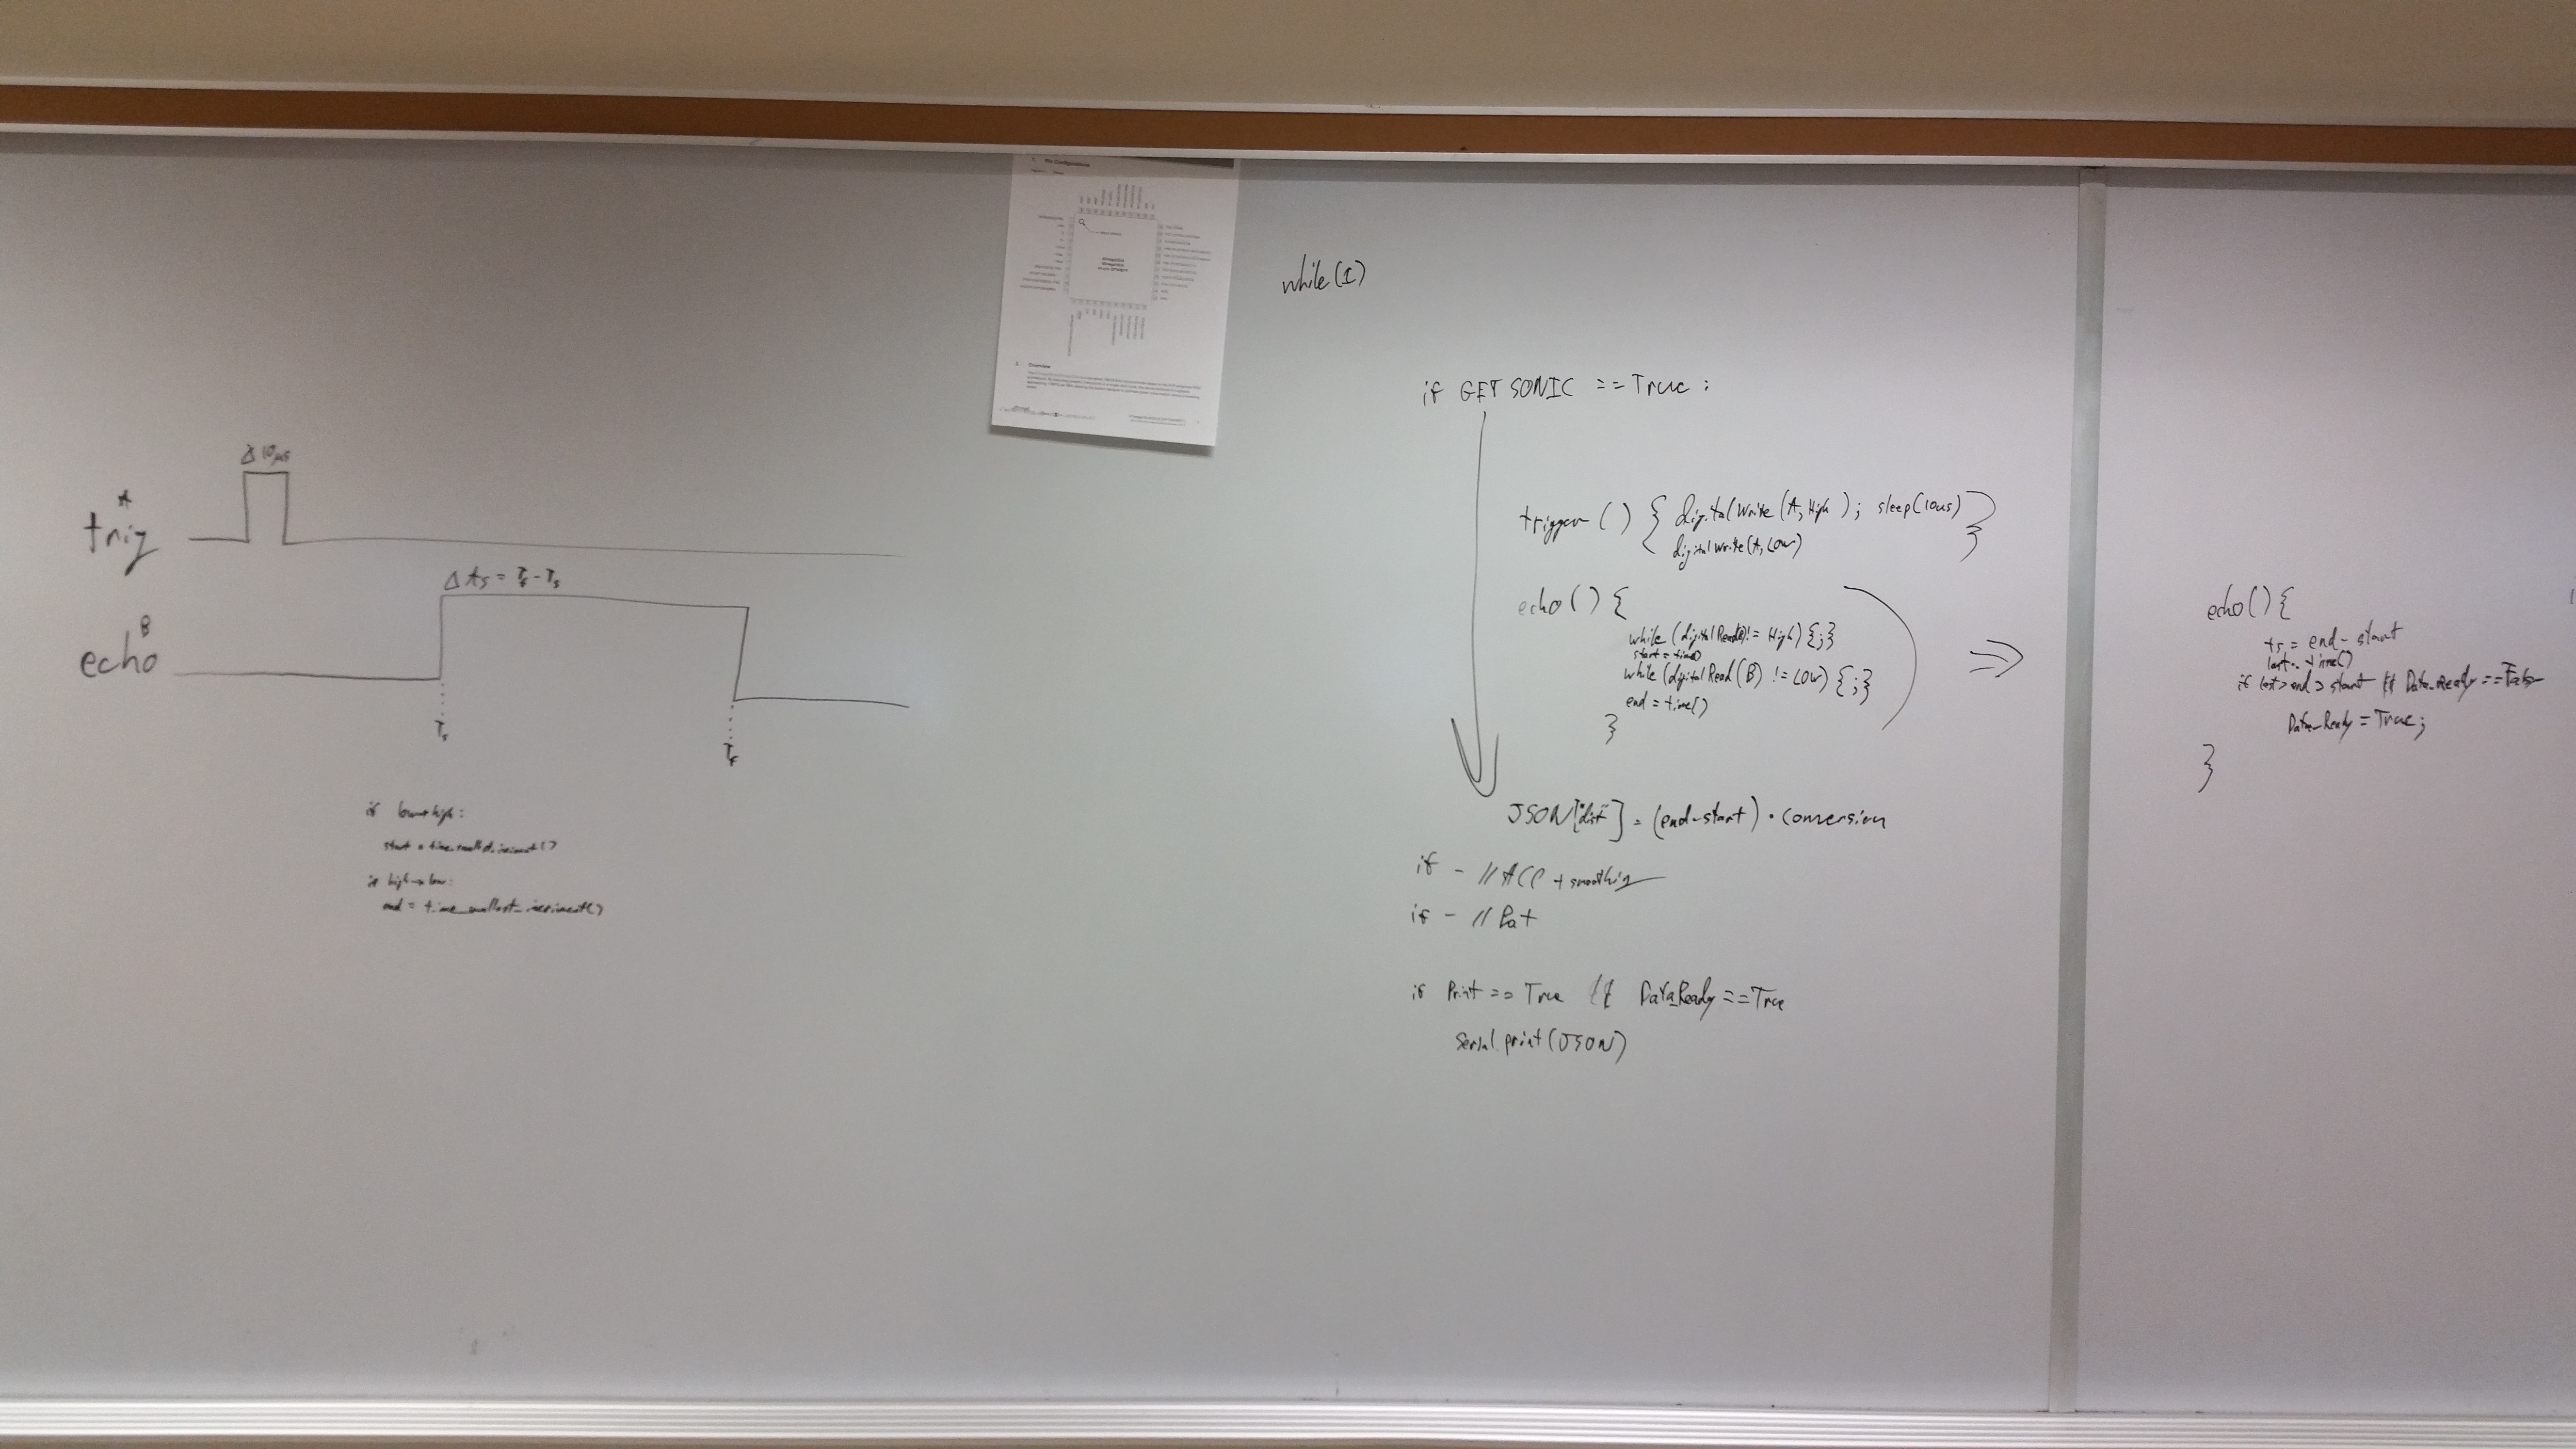 1. Pin Configurations
2. Overview
Δ 10μs
A
trig
Δts = Tf - Ts
B
echo
Ts
Tf
if low→high:
start = time_smallest_increment()
if high→low:
end = time_smallest_increment()
while(1)
if GET SONIC == True :
trigger ( ) { digitalWrite (A, High ) ; sleep(10us)
digitalWrite(A, Low) }
echo ( ) {
while (digitalRead(B) != High) {;}
start = time()
while (digitalRead (B) != LOW) {;}
end = time()
}
JSON["dist"] = (end-start) • conversion
if - // ACC + smoothing
if - // Pot
if Print == True && Data_Ready == True
Serial.print(JSON)
⇒
echo() {
ts = end - start
last = time()
if last > end > start && Data_Ready == False
Data_Ready = True;
}